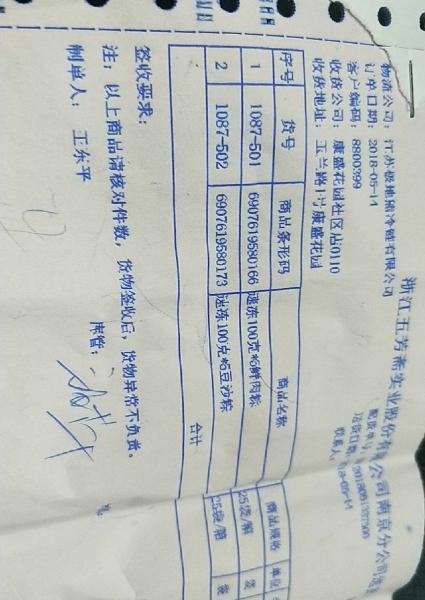 浙江五芳斋实业股份有限公司南京分公司
物流公司：江苏极地熊冷链有限公司
订单日期：2018-05-14
客户编码：8800399
收货公司：康盛花园社区店0110
收货地址：玉兰路1号康盛花园
联系人
序号 货号 商品条形码 商品名称 商品规格 单位
1 1087-501 6907619580166 速冻100克*6鲜肉粽 25袋/箱 袋
2 1087-502 6907619580173 速冻100克*6豆沙粽 25袋/箱 袋
合计
签收要求：
注：以上商品请核对件数，货物签收后，货物异常不负责。
制单人：王东平
库管：